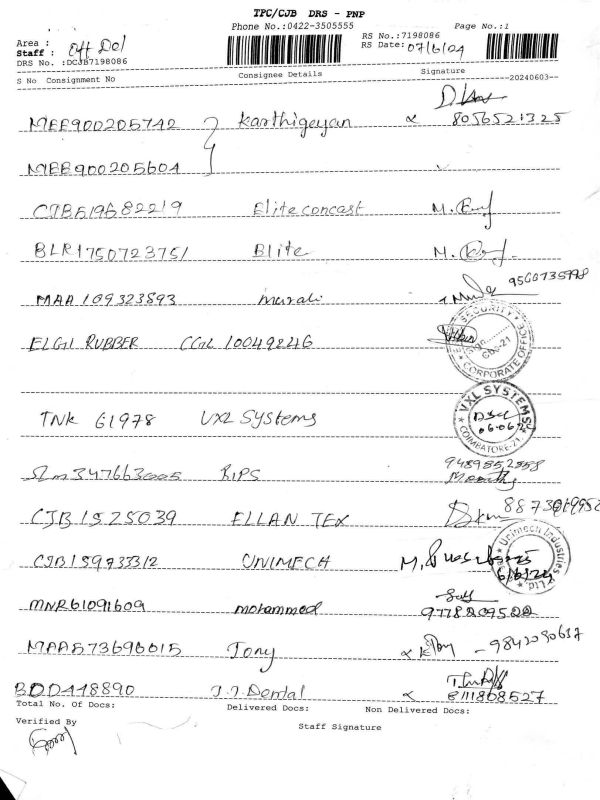 TPC/CJB DRS - PNP
Phone No.:0422-3505555 Page No.:1
Area : RS No.:7198086
Staff : Off Del RS Date: 07/6/24
DRS No. :DCJB7198086
S No Consignment No Consignee Details Signature --20240603--
MEE900205742 Karthigeyan 8056521325
MEE900205604
CJB519682219 Elite concast M.
BLR1750723751 Blite M.
MAA 109323893 murali 9566735998
ELGI RUBBER CGL 10049246
SECURITY CBE-21 CORPORATE OFFICE
TNK 61978 VXL Systems
VXL SYSTEMS COIMBATORE-21. 06.06.24
347663005 RIPS 9489552558
CJB1525039 ELLAN TEX
CJB159733312 UNIMECH M.
Unimech Industries 6/6/24
MNR61091609 mohammed
MAA573696015 Tony 9842090637
BDD448890 J.J. Dental 8111868527
Total No. Of Docs: Delivered Docs: Non Delivered Docs:
Verified By Staff Signature